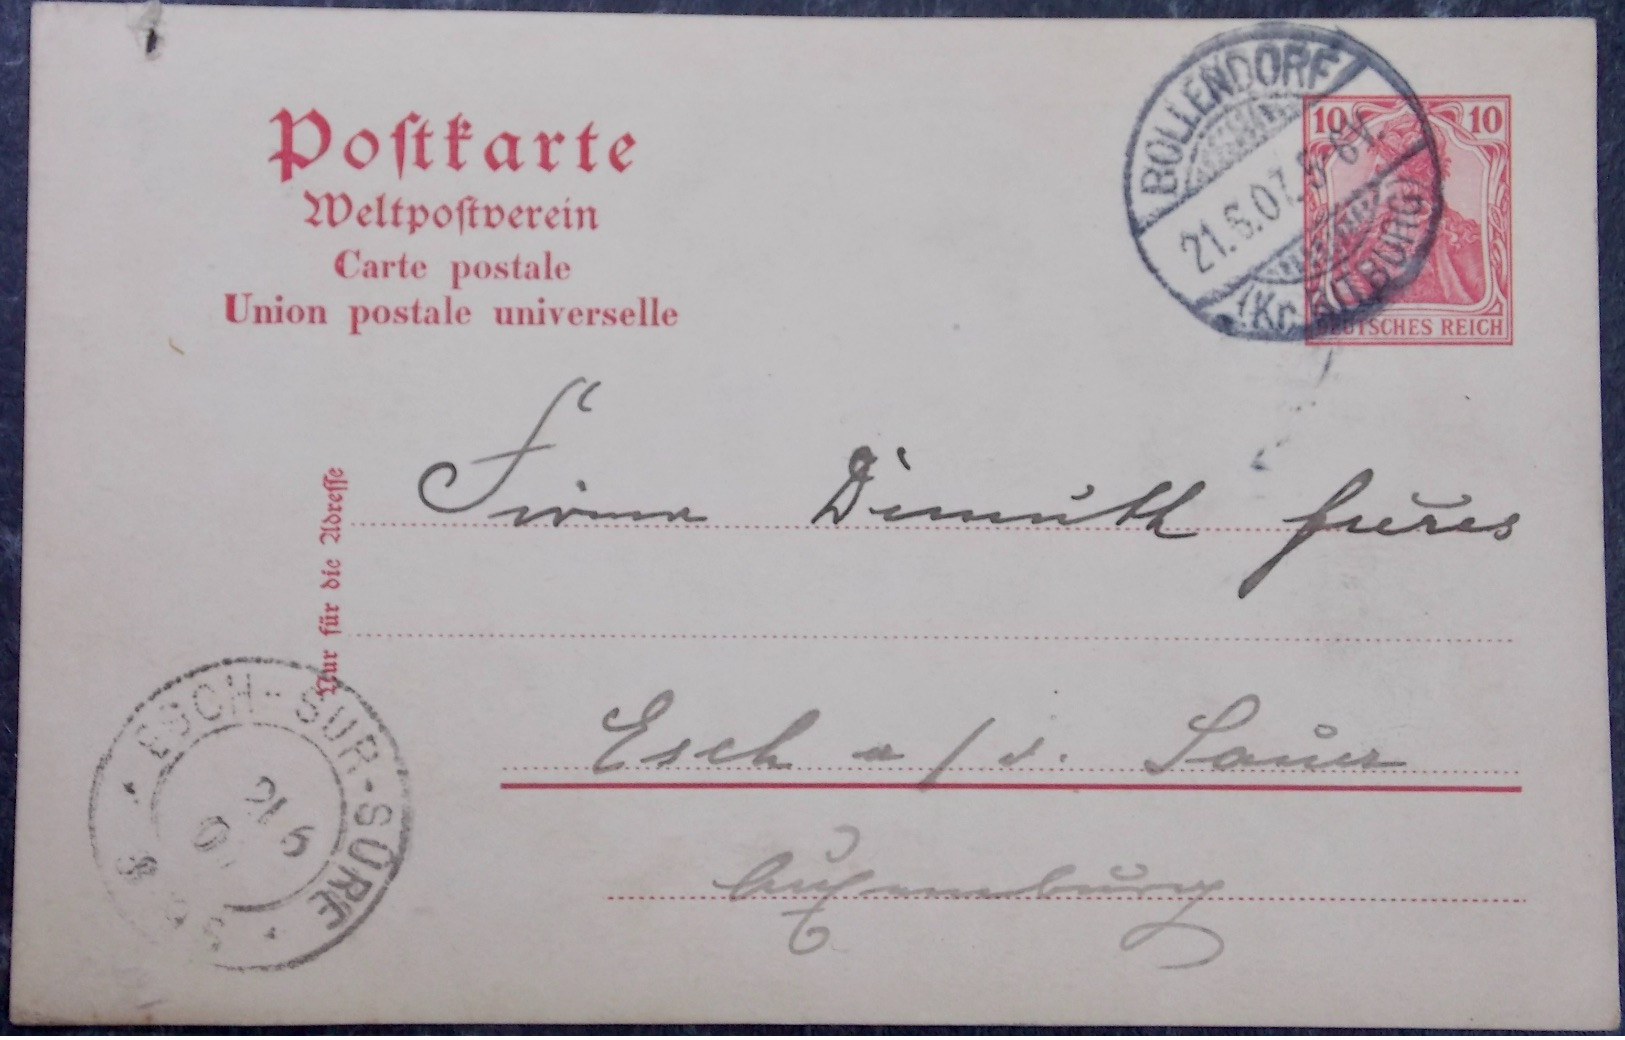 Postkarte
Weltpostverein
Carte postale
Union postale universelle
BOLLENDORF
21.6.07. 5-6N.
(Kr. BITBURG)
10 10
DEUTSCHES REICH
Nur für die Adresse
Firma Dimuth freres
Esch a/d. Sauer
Luxemburg
ESCH-SUR-SÛRE
21 6